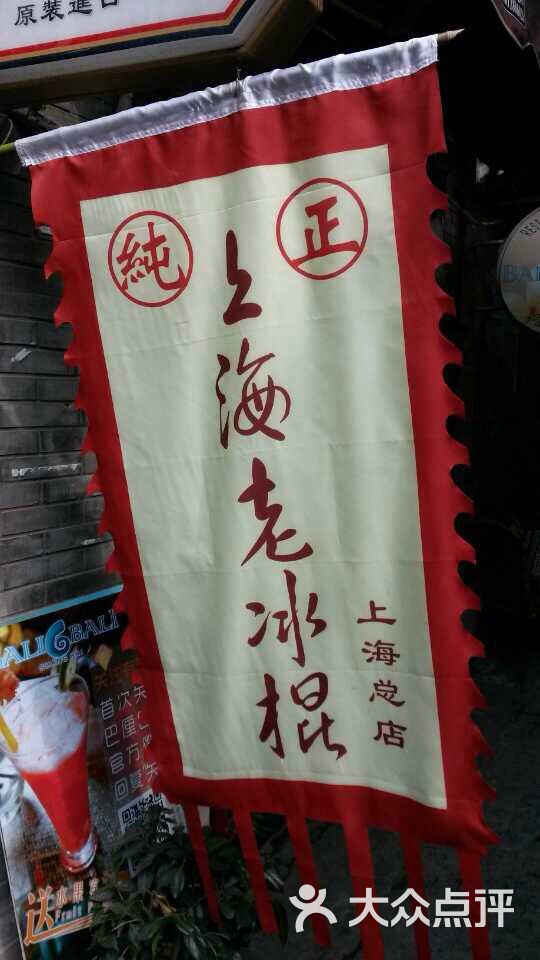 原裝進口
純正
上海老冰棍
上海总店
BALI BALI
首次关
巴厘
官方
回复
送水果
Fruit
大众点评